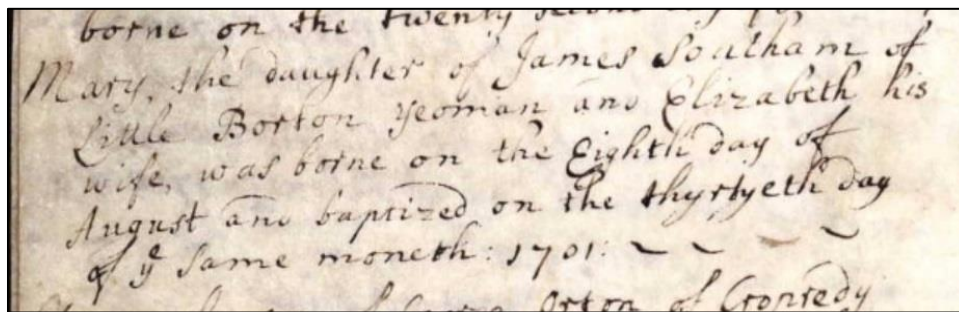 borne on the twenty second day
Mary, the daughter of James Southam of
Little Borton yeoman and Elizabeth his
wife, was borne on the Eighth day of
August and baptized on the thyrtyeth day
of ye same moneth: 1701: ~ ~ ~ ~
Orton of Cropredy